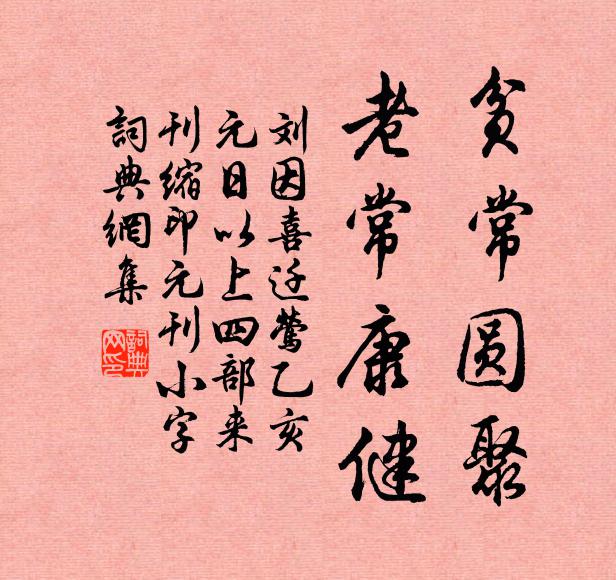 贫常圆聚
老常康健
刘因喜迁莺乙亥
元日以上四部来
刊缩印元刊小字
詞典網集
詞典
网印